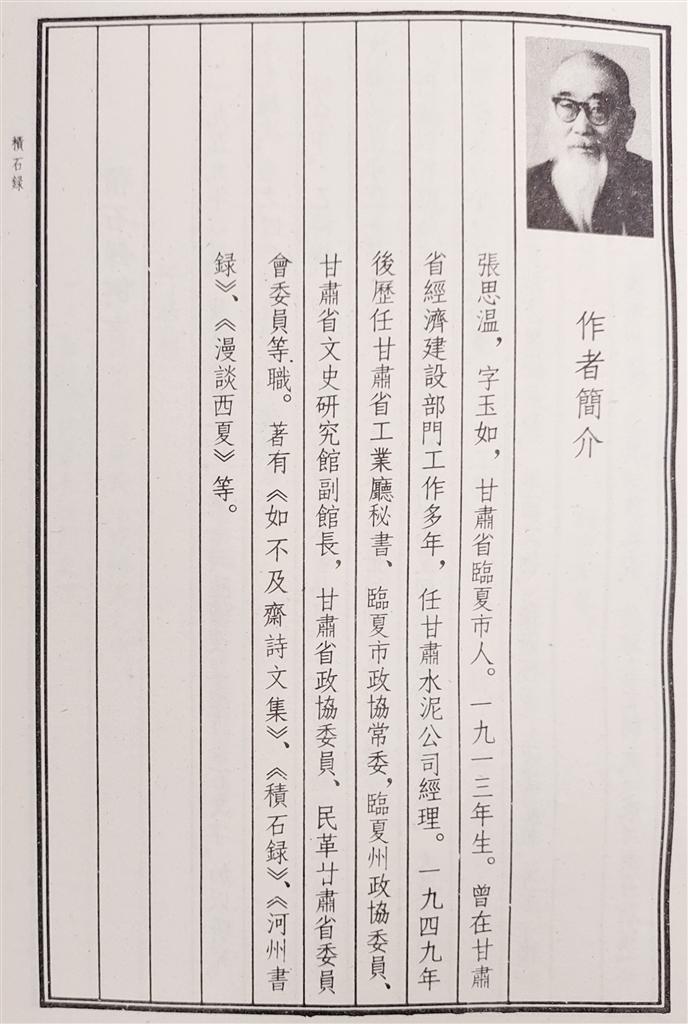 積石録
作者簡介
張思温，字玉如，甘肅省臨夏市人。一九一三年生。曾在甘肅
省經濟建設部門工作多年，任甘肅水泥公司經理。一九四九年
後歷任甘肅省工業廳秘書、臨夏市政協常委，臨夏州政協委員、
甘肅省文史研究館副館長，甘肅省政協委員、民革甘肅省委員
會委員等職。著有《如不及齋詩文集》、《積石録》、《河州書
録》、《漫談西夏》等。